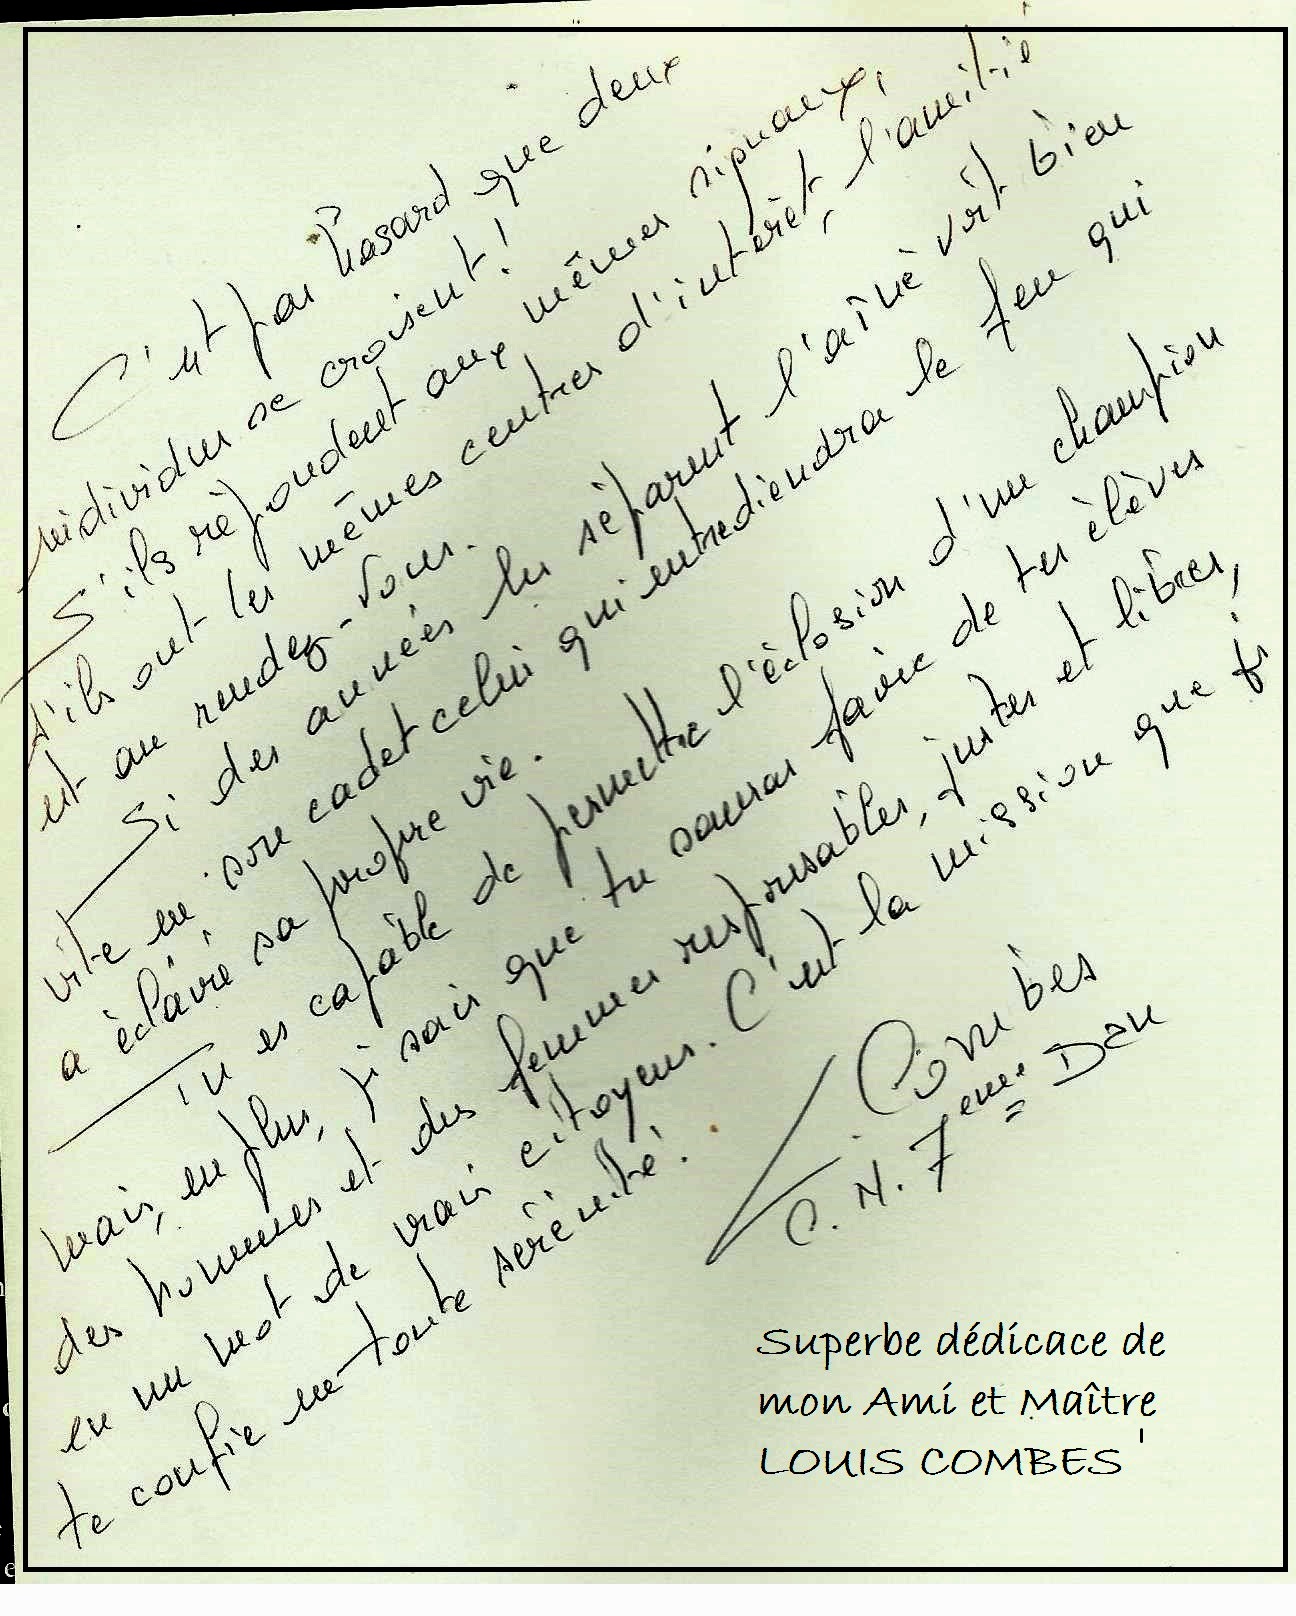 C'est par hasard que deux
individus se croisent !
S'ils répondent aux mêmes signaux,
s'ils ont les mêmes centres d'intérêt, l'amitié
est au rendez-vous.
Si des années les séparent l'aîné voit bien
vite en son cadet celui qui entretiendra le feu qui
a éclairé sa propre vie.
Tu es capable de permettre l'éclosion d'un champion
mais, en plus, je sais que tu sauras faire de tes élèves
des hommes et des femmes responsables, justes et libres,
en un mot de vrais citoyens. C'est la mission que je
te confie en toute sérénité.
L. Combes
C.N. 7eme Dan
Superbe dédicace de
mon Ami et Maître
LOUIS COMBES